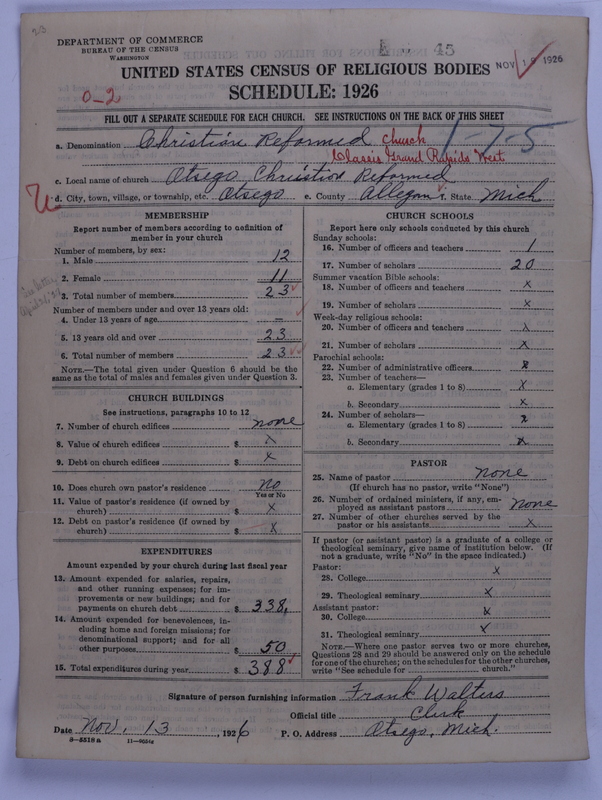 213
DEPARTMENT OF COMMERCE
BUREAU OF THE CENSUS
WASHINGTON
45
NOV 1926
UNITED STATES CENSUS OF RELIGIOUS BODIES
SCHEDULE: 1926
0-2
FILL OUT A SEPARATE SCHEDULE FOR EACH CHURCH. SEE INSTRUCTIONS ON THE BACK OF THIS SHEET
a. Denomination Christian Reformed Church 1-7-5
Classis Grand Rapids West
c. Local name of church Otsego Christian Reformed
d. City, town, village, or township, etc. Otsego e. County Allegan State Mich
MEMBERSHIP
Report number of members according to definition of
member in your church
Number of members, by sex:
1. Male 12
2. Female 11
3. Total number of members 23
Number of members under and over 13 years old:
4. Under 13 years of age –
5. 13 years old and over 23
6. Total number of members 23
NOTE.—The total given under Question 6 should be the
same as the total of males and females given under Question 3.
CHURCH BUILDINGS
See instructions, paragraphs 10 to 12
7. Number of church edifices none
8. Value of church edifices $ X
9. Debt on church edifices $ X
10. Does church own pastor's residence No
Yes or No
11. Value of pastor's residence (if owned by
church) $ X
12. Debt on pastor's residence (if owned by
church) $ X
EXPENDITURES
Amount expended by your church during last fiscal year
13. Amount expended for salaries, repairs,
and other running expenses; for im-
provements or new buildings; and for
payments on church debt $ 338.
14. Amount expended for benevolences, in-
cluding home and foreign missions; for
denominational support; and for all
other purposes $ 50
15. Total expenditures during year $ 388
CHURCH SCHOOLS
Report here only schools conducted by this church
Sunday schools:
16. Number of officers and teachers 1
17. Number of scholars 20
Summer vacation Bible schools:
18. Number of officers and teachers X
19. Number of scholars X
Week-day religious schools:
20. Number of officers and teachers X
21. Number of scholars X
Parochial schools:
22. Number of administrative officers X
23. Number of teachers—
a. Elementary (grades 1 to 8) X
b. Secondary X
24. Number of scholars—
a. Elementary (grades 1 to 8) X
b. Secondary X
PASTOR
25. Name of pastor none
(If church has no pastor, write "None")
26. Number of ordained ministers, if any, em-
ployed as assistant pastors None
27. Number of other churches served by the
pastor or his assistants X
If pastor (or assistant pastor) is a graduate of a college or
theological seminary, give name of institution below. (If
not a graduate, write "No" in the space indicated.)
Pastor:
28. College X
29. Theological seminary X
Assistant pastor:
30. College X
31. Theological seminary X
NOTE.—Where one pastor serves two or more churches,
Questions 28 and 29 should be answered only on the schedule
for one of the churches; on the schedules for the other churches,
write "See schedule for church."
Signature of person furnishing information Frank Walters
Official title Clerk
Date Nov. 13, 1926 P. O. Address Otsego, Mich.
8-5518a